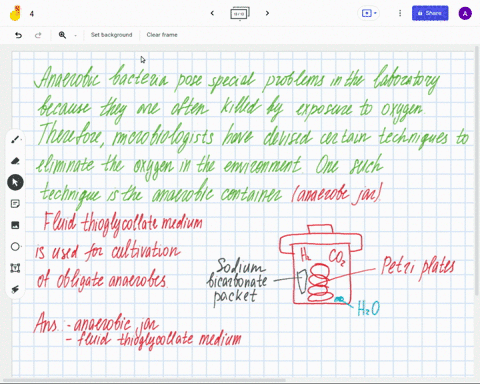 4
Share
A
Set background
Clear frame
Anaerobic bacteria pose special problems in the laboratory
because they are often killed by exposure to oxygen.
Therefore, microbiologists have devised certain techniques to
eliminate the oxygen in the environment. One such
technique is the anaerobic container (anaerobe jar)
Fluid thioglycollate medium
is used for cultivation
of obligate anaerobes
Ans : - anaerobic jar
- fluid thioglycollate medium
H2 CO2
Sodium
bicarbonate
packet
Petri plates
H2O